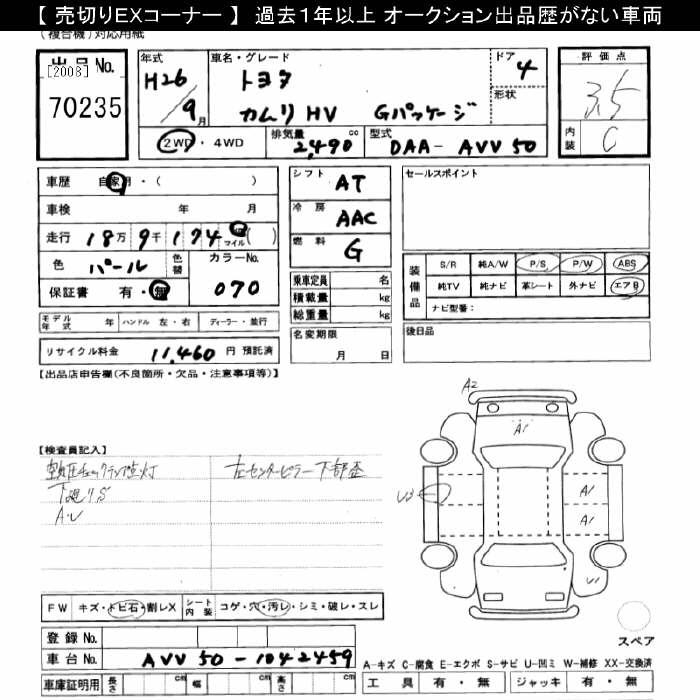 【 売切りEXコーナー 】 過去１年以上 オークション出品歴がない車両
(複合機)対応用紙
出品No.
[2008]
70235
年式
H26
9月
車名・グレード
トヨタ
カムリ HV Gパッケージ
ドア 4
形状
2WD・4WD
排気量 2,490 cc
型式 DAA- AVV50
評価点
3.5
内装 C
車歴 自家用・( )
車検 年 月
走行 18万 9千 174 マイル( )
色 パール 色替
カラーNo. 070
保証書 有・無
モデル年式 年 ハンドル 左・右 ディーラー・並行
リサイクル料金 11,460 円 預託済
シフト AT
冷房 AAC
燃料 G
乗車定員 名
積載量 kg
総重量 kg
名変期限
月 日
セールスポイント
装備品
S/R 純A/W P/S P/W ABS
純TV 純ナビ 革シート 外ナビ エアB
ナビ型番：
後日品
【出品店申告欄(不良箇所・欠品・注意事項等)】
【検査員記入】
空気圧チェックランプ点灯
下廻りS
A・U
左センターピラー下部歪
A2
A1
U3
A1
A1
U1
スペア
FW キズ・トビ石・割レX
シート内装 コゲ・穴・汚レ・シミ・破レ・スレ
登録No.
車台No. AVV50-1042459
車庫証明用 長さ cm 幅 cm 高さ cm
A-キズ C-腐食 E-エクボ S-サビ U-凹ミ W-補修 XX-交換済
工具 有・無 ジャッキ 有・無